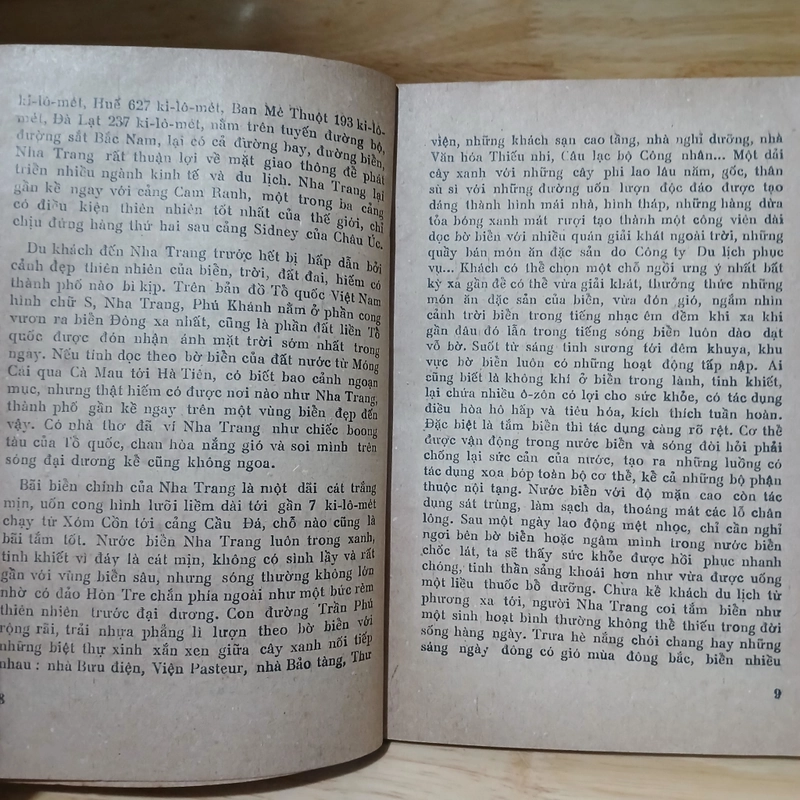 ki-lô-mét, Huế 627 ki-lô-mét, Ban Mê Thuột 193 ki-lô-
mét, Đà Lạt 237 ki-lô-mét, nằm trên tuyến đường bộ,
đường sắt Bắc Nam, lại có cả đường bay, đường biển,
Nha Trang rất thuận lợi về mặt giao thông để phát
triển nhiều ngành kinh tế và du lịch. Nha Trang lại
gần kề ngay với cảng Cam Ranh, một trong ba cảng
có điều kiện thiên nhiên tốt nhất của thế giới, chỉ
chịu đứng hàng thứ hai sau cảng Sidney của Châu Úc.
Du khách đến Nha Trang trước hết bị hấp dẫn bởi
cảnh đẹp thiên nhiên của biển, trời, đất đai, hiếm có
thành phố nào bì kịp. Trên bản đồ Tổ quốc Việt Nam
hình chữ S, Nha Trang, Phú Khánh nằm ở phần cong
vươn ra biển Đông xa nhất, cũng là phần đất liền Tổ
quốc được đón nhận ánh mặt trời sớm nhất trong
ngày. Nếu tính dọc theo bờ biển của đất nước từ Móng
Cái qua Cà Mau tới Hà Tiên, có biết bao cảnh ngoạn
mục, nhưng thật hiếm có được nơi nào như Nha Trang,
thành phố gần kề ngay trên một vùng biển đẹp đến
vậy. Có nhà thơ đã ví Nha Trang như chiếc boong
tàu của Tổ quốc, chan hòa nắng gió và soi mình trên
sóng đại dương kể cũng không ngoa.
Bãi biển chính của Nha Trang là một dãi cát trắng
mịn, uốn cong hình lưỡi liềm dài tới gần 7 ki-lô-mét
chạy từ Xóm Cồn tới cảng Cầu Đá, chỗ nào cũng là
bãi tắm tốt. Nước biển Nha Trang luôn trong xanh,
tinh khiết vì đáy là cát mịn, không có sình lầy và rất
gần với vùng biển sâu, nhưng sóng thường không lớn
nhờ có đảo Hòn Tre chắn phía ngoài như một bức rèm
thiên nhiên trước đại dương. Con đường Trần Phú
rộng rãi, trải nhựa phẳng lì lượn theo bờ biển với
những biệt thự xinh xắn xen giữa cây xanh nối tiếp
nhau : nhà Bưu điện, Viện Pasteur, nhà Bảo tàng, Thư
8
viện, những khách sạn cao tầng, nhà nghỉ dưỡng, nhà
Văn hóa Thiếu nhi, Câu lạc bộ Công nhân... Một dải
cây xanh với những cây phi lao lâu năm, gốc, thân
sù sì với những đường uốn lượn độc đáo được tạo
dáng thành hình mái nhà, hình tháp, những hàng dừa
tỏa bóng xanh mát rượi tạo thành một công viên dài
dọc bờ biển với nhiều quán giải khát ngoài trời, những
quầy bán món ăn đặc sản do Công ty Du lịch phục
vụ... Khách có thể chọn một chỗ ngồi ưng ý nhất bất
kỳ xa gần để có thể vừa giải khát, thưởng thức những
món ăn đặc sản của biển, vừa đón gió, ngắm nhìn
cảnh trời biển trong tiếng nhạc êm đềm khi xa khi
gần đâu đó lẫn trong tiếng sóng biển luôn dào dạt
vỗ bờ. Suốt từ sáng tinh sương tới đêm khuya, khu
vực bờ biển luôn có những hoạt động tấp nập. Ai
cũng biết là không khí ở biển trong lành, tinh khiết,
lại chứa nhiều ô-zôn có lợi cho sức khỏe, có tác dụng
điều hòa hô hấp và tiêu hóa, kích thích tuần hoàn.
Đặc biệt là tắm biển thì tác dụng càng rõ rệt. Cơ thể
được vận động trong nước biển và sóng đòi hỏi phải
chống lại sức cản của nước, tạo ra những luồng có
tác dụng xoa bóp toàn bộ cơ thể, kể cả những bộ phận
thuộc nội tạng. Nước biển với độ mặn cao còn tác
dụng sát trùng, làm sạch da, thoáng mát các lỗ chân
lông. Sau một ngày lao động mệt nhọc, chỉ cần nghỉ
ngơi bên bờ biển hoặc ngâm mình trong nước biển
chốc lát, ta sẽ thấy sức khỏe được hồi phục nhanh
chóng, tinh thần sảng khoái hơn như vừa được uống
một liều thuốc bổ dưỡng. Chưa kể khách du lịch từ
phương xa tới, người Nha Trang coi tắm biển như
một sinh hoạt bình thường không thể thiếu trong đời
sống hàng ngày. Trưa hè nắng chói chang hay những
sáng ngày đông có gió mùa đông bắc, biển nhiều
9